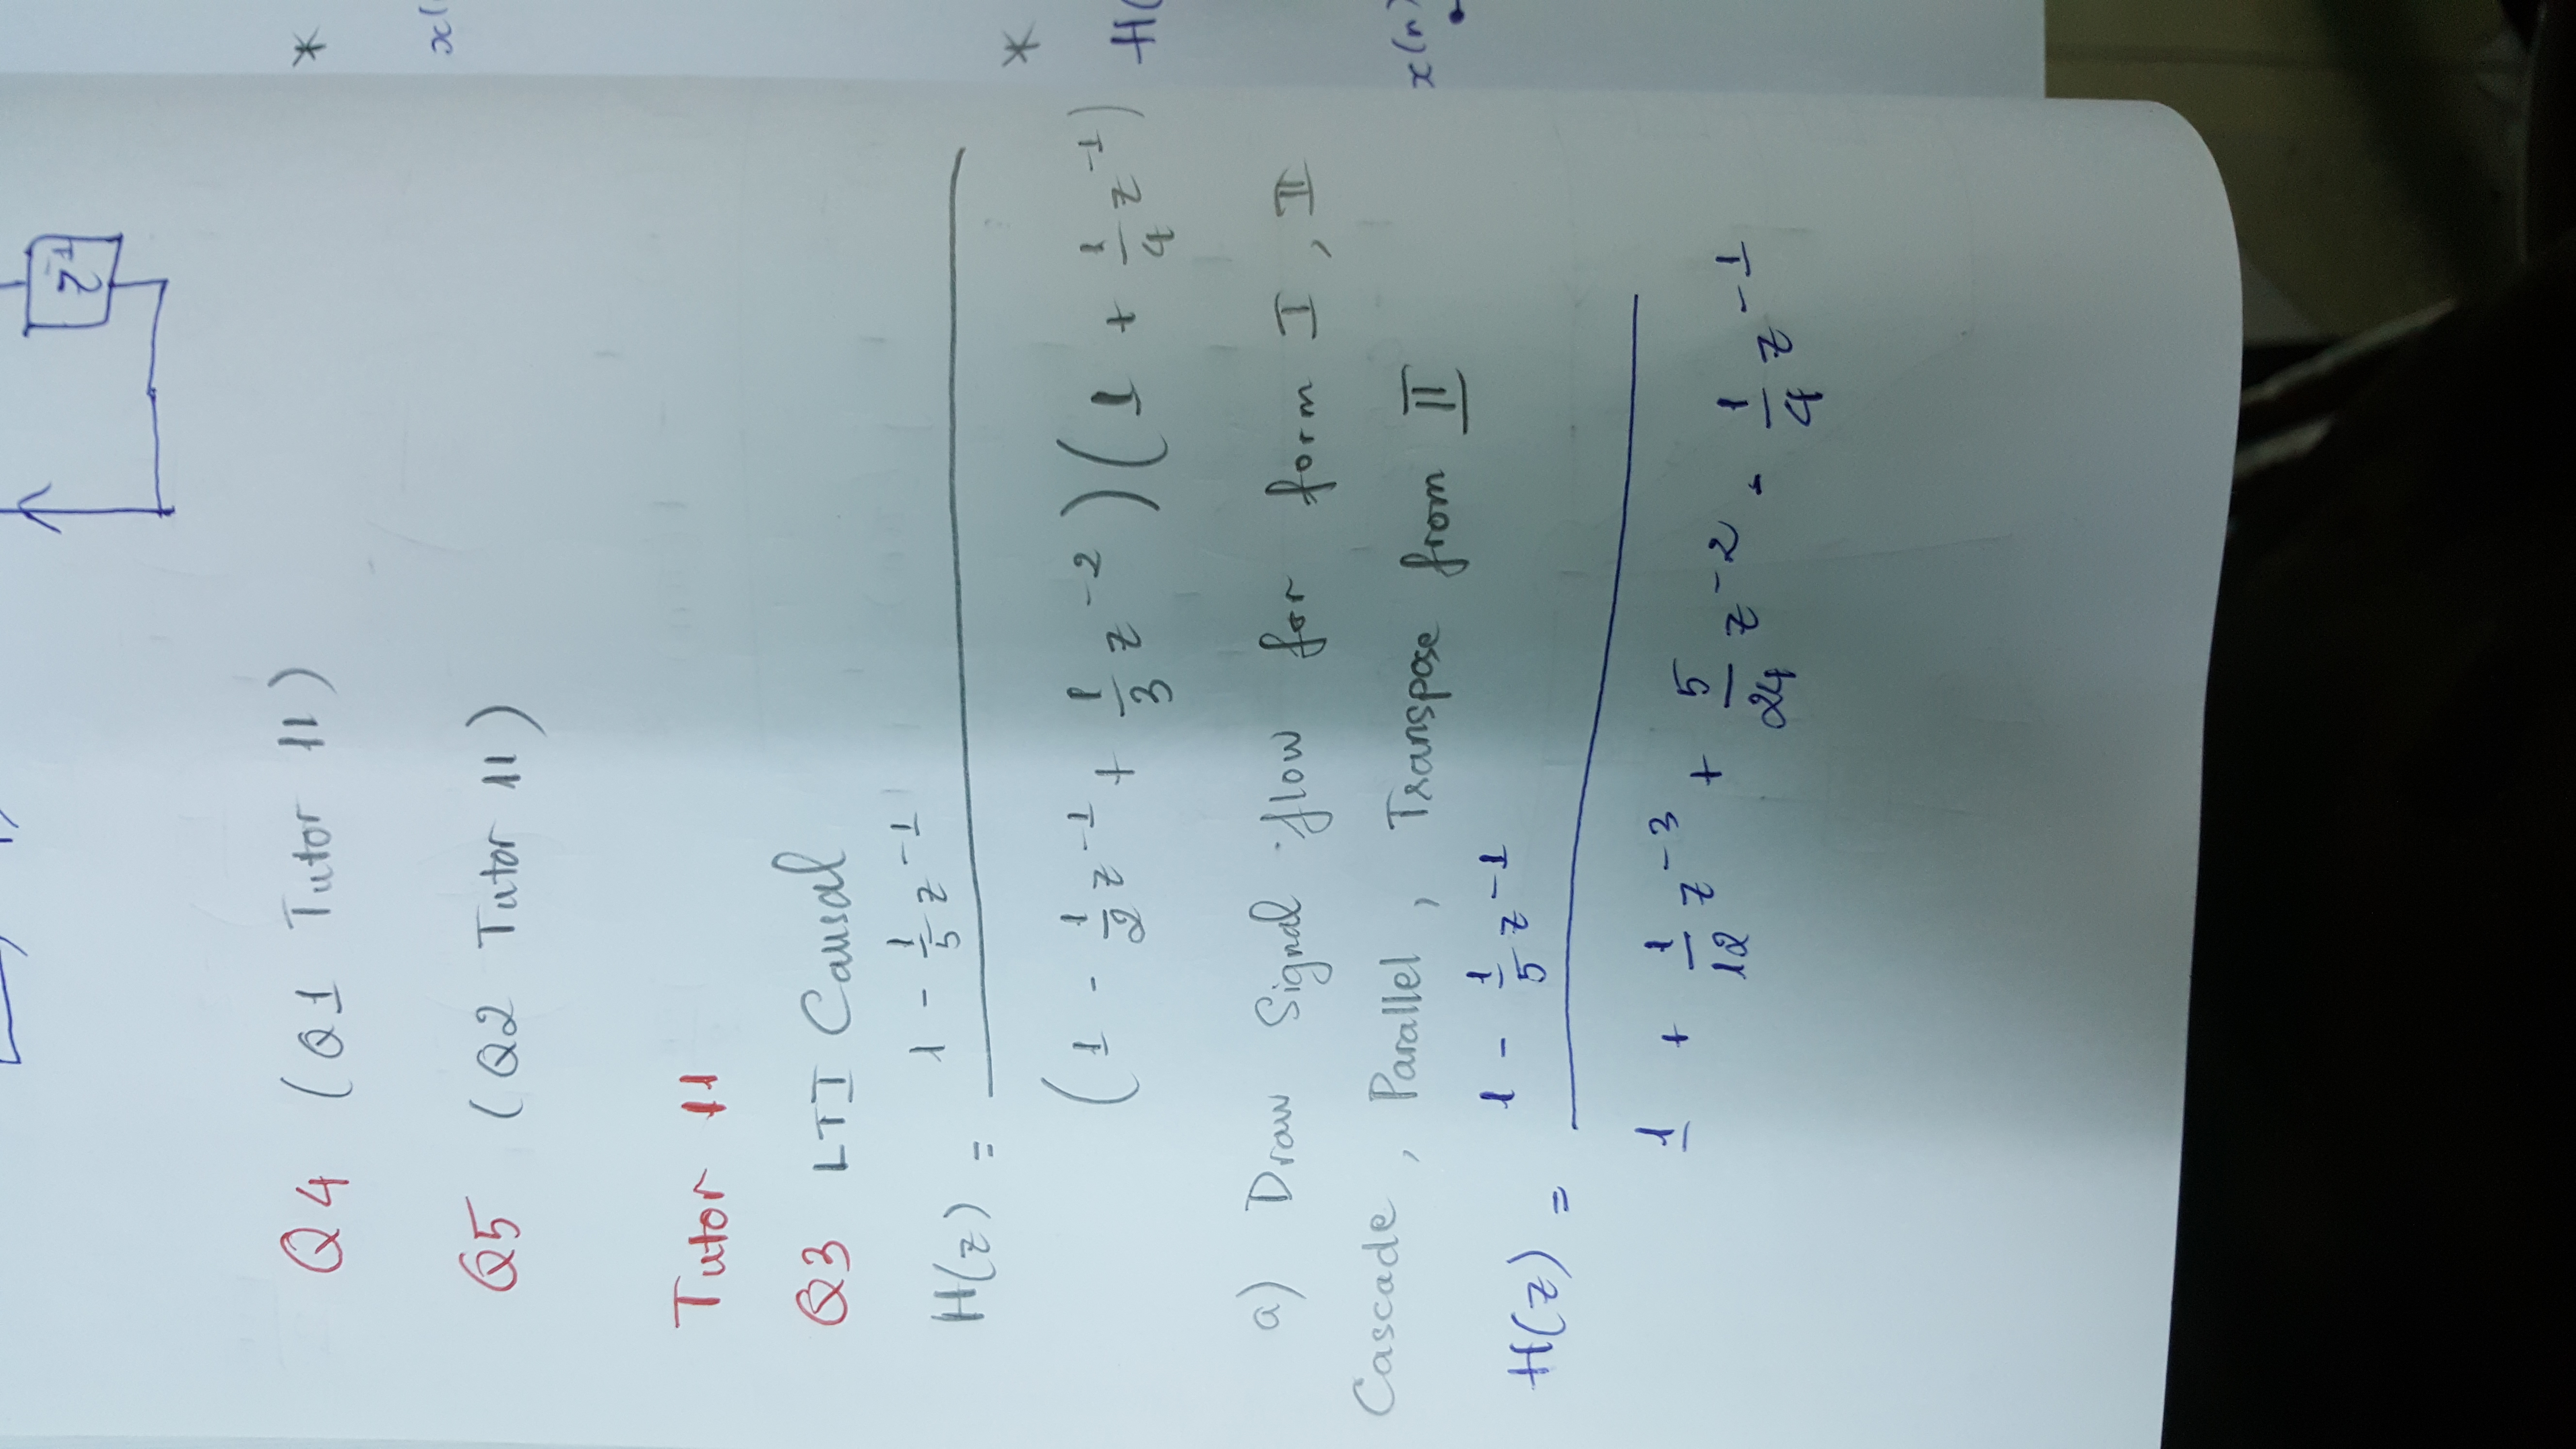 z⁻¹
Q4 (Q1 Tutor 11)
*
x(
Q5 (Q2 Tutor 11)
Tutor 11
Q3 LTI Causal
H(z) = (1 - 1/5 z⁻¹) / ((1 - 1/2 z⁻¹ + 1/3 z⁻²)(1 + 1/4 z⁻¹))
*
H(
a) Draw Signal flow for form I, II
Cascade, Parallel, Transpose from II
x(n)
H(z) = (1 - 1/5 z⁻¹) / (1 + 1/12 z⁻³ + 5/24 z⁻² - 1/4 z⁻¹)